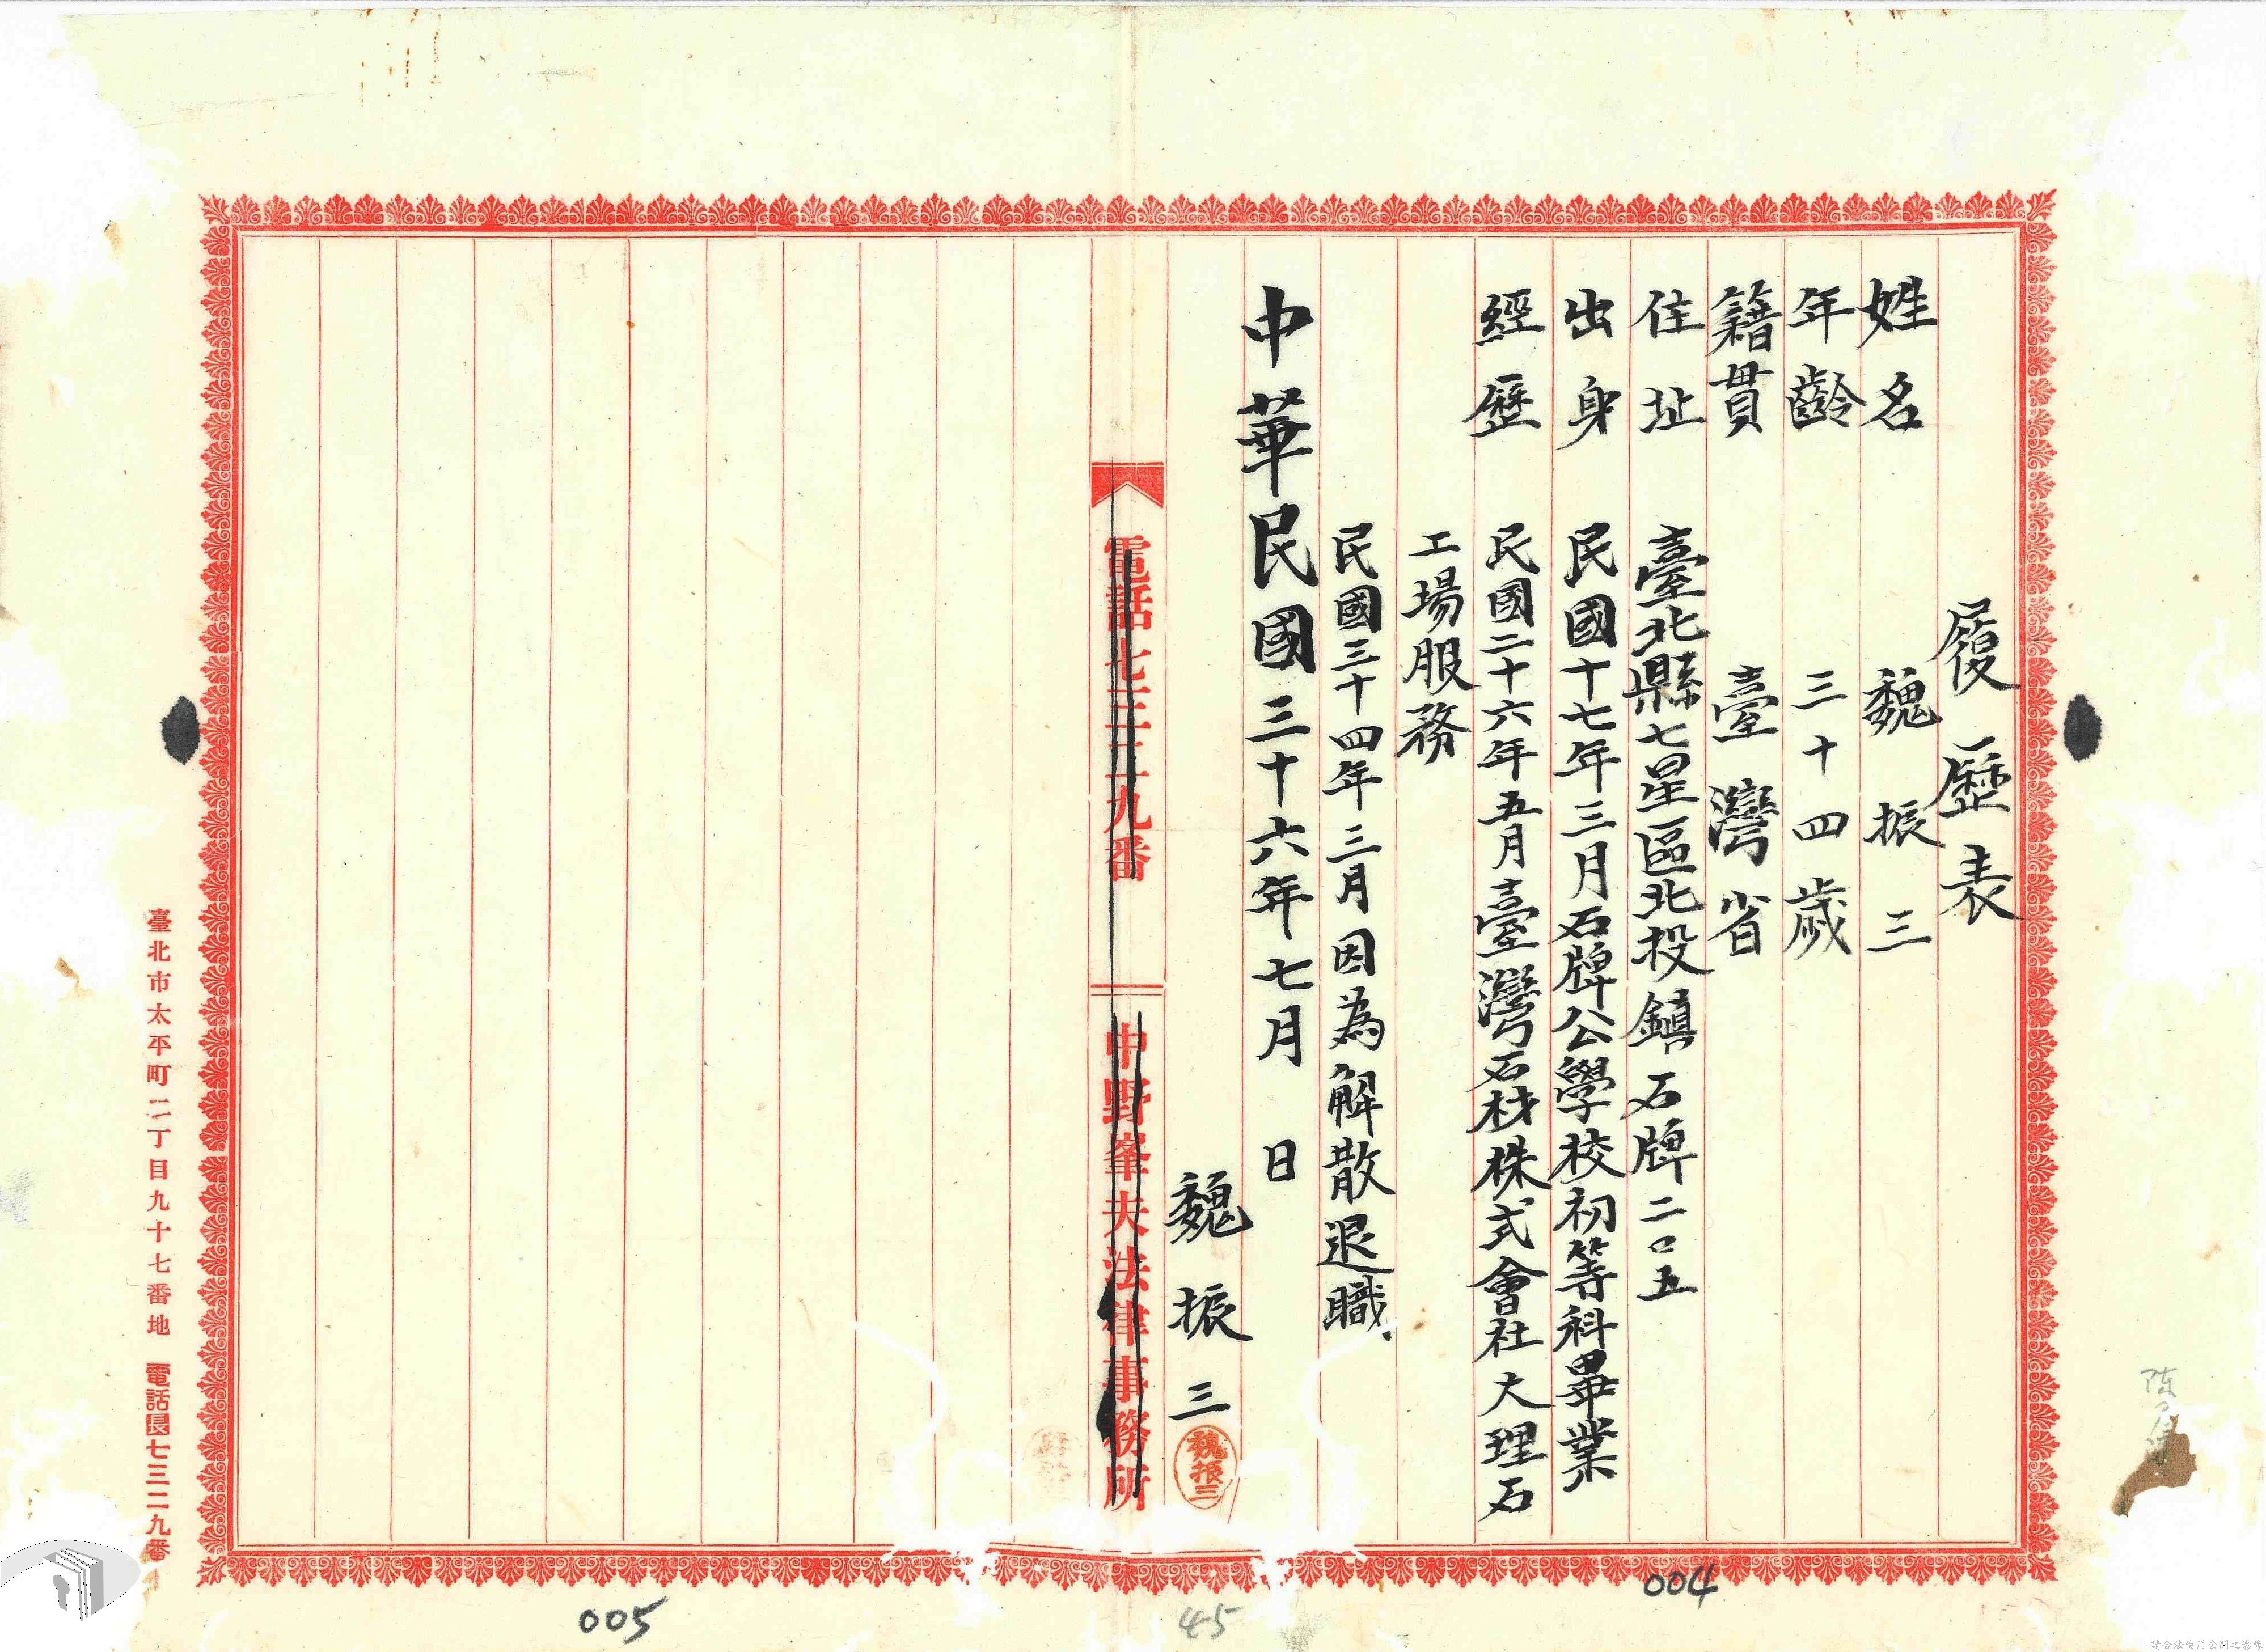 履歷表
姓名 魏振三
年齡 三十四歲
籍貫 臺灣省
住址 臺北縣七星區北投鎮石牌二〇五
出身 民國十七年三月石牌公學校初等科畢業
經歷 民國二十六年五月臺灣石材株式會社大理石
工場服務
民國三十四年三月因為解散退職
中華民國三十六年七月 日
魏振三
魏振三
電話七三二九番
中野峯夫法律事務所
臺北市太平町二丁目九十七番地 電話長七三二九番
004
45
005
請合法使用公開之影像